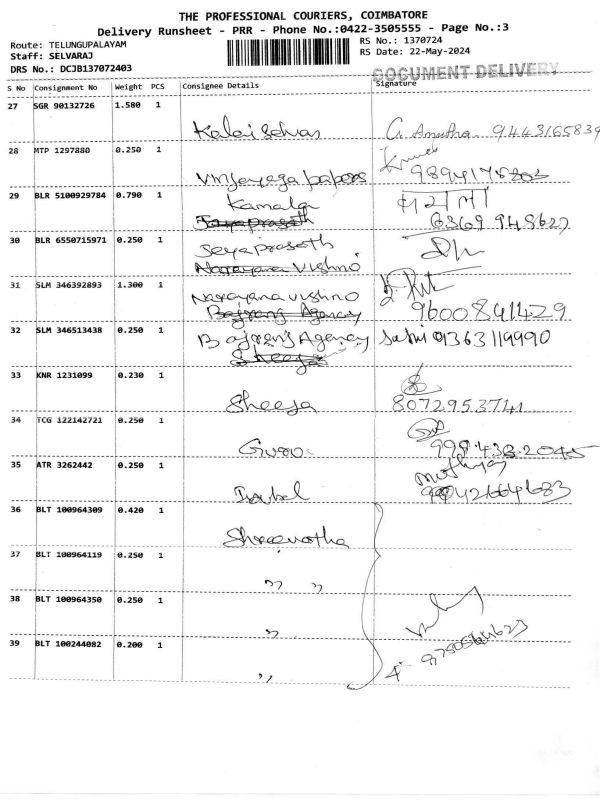 THE PROFESSIONAL COURIERS, COIMBATORE
Delivery Runsheet - PRR - Phone No.:0422-3505555 - Page No.:3
Route: TELUNGUPALAYAM
Staff: SELVARAJ
DRS No.: DCJB137072403
RS No.: 1370724
RS Date: 22-May-2024
DOCUMENT DELIVERY
S No Consignment No Weight PCS Consignee Details Signature
27 SGR 90132726 1.580 1
Kalaiselvan 9443165839
28 MTP 1297880 0.250 1
29 BLR 5100929784 0.790 1 Kamala
Jeyaprasath 6369 948627
30 BLR 6550715971 0.250 1 Jeyaprasath
Narayana Vishno
31 SLM 346392893 1.300 1 Narayana vishno
Bajrang Agency 9600841429
32 SLM 346513438 0.250 1 Bajrang Agency 9363119990
Sheeja
33 KNR 1231099 0.230 1
Sheeja 8072953741
34 TCG 122142721 0.250 1
35 ATR 3262442 0.250 1
36 BLT 100964309 0.420 1
37 BLT 100964119 0.250 1
" "
38 BLT 100964350 0.250 1
"
39 BLT 100244082 0.200 1
"